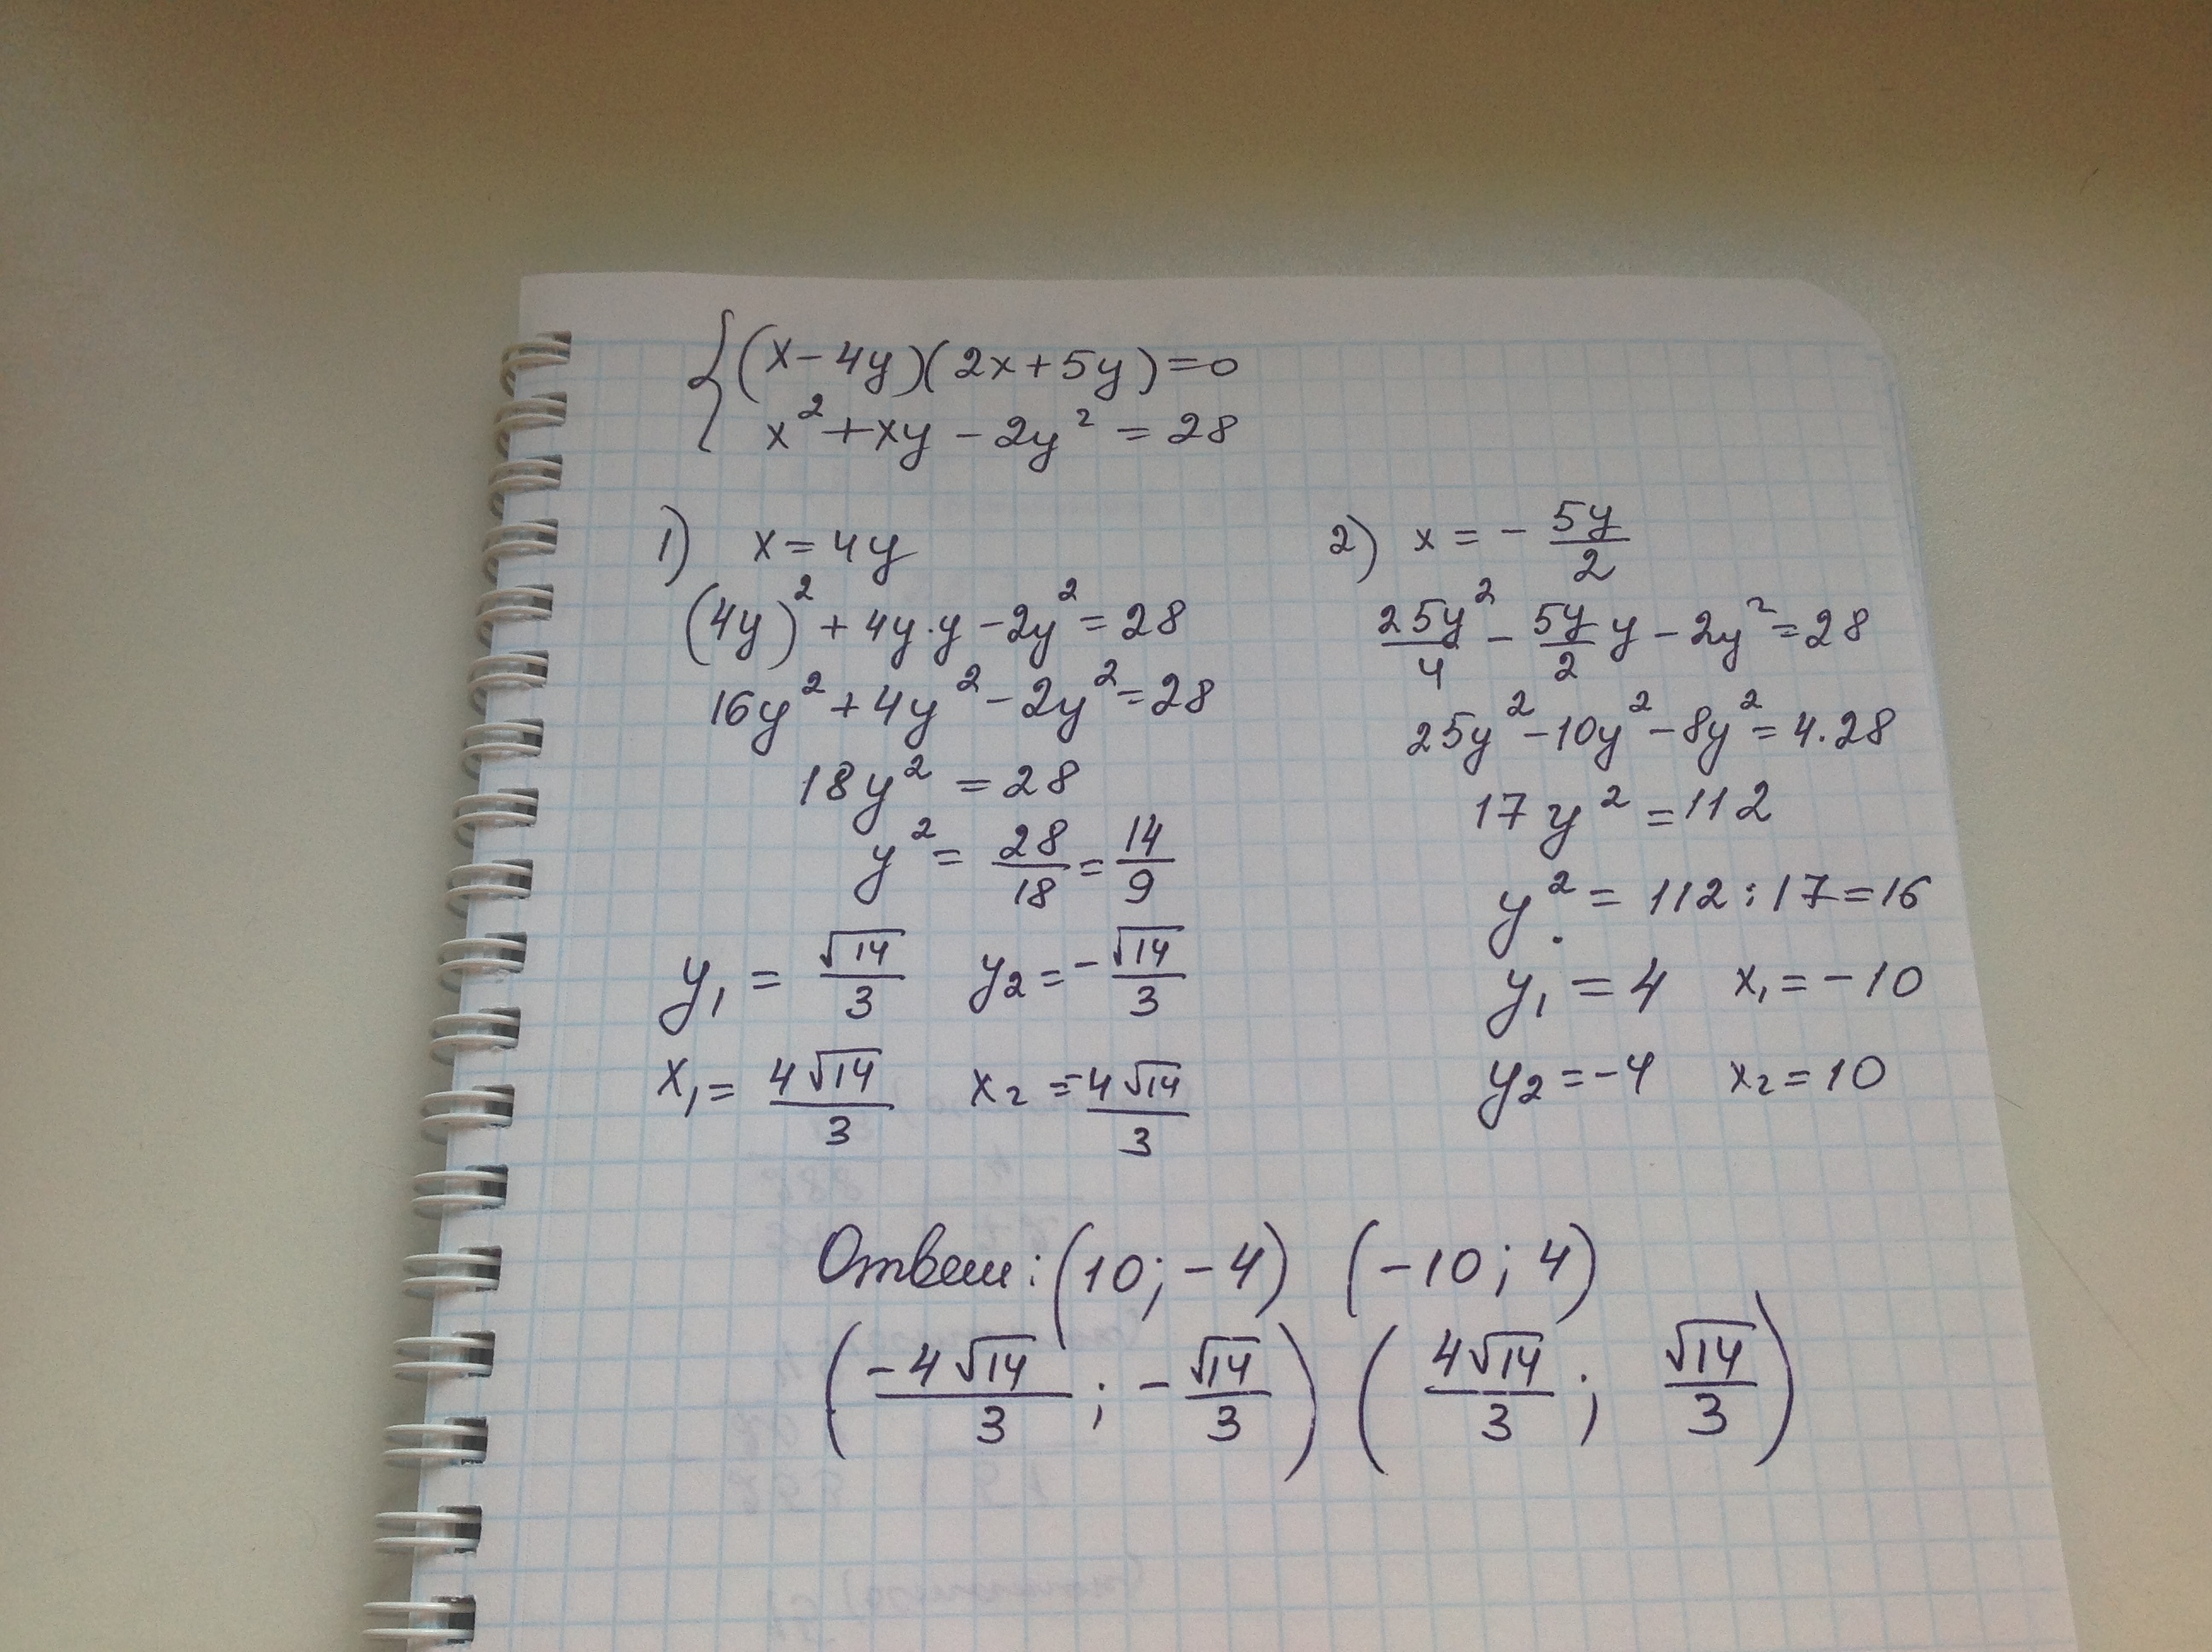 {(x-4y)(2x+5y)=0
x²+xy-2y²=28
1) x=4y
(4y)²+4y·y-2y²=28
16y²+4y²-2y²=28
18y²=28
y²=28/18=14/9
y₁=√14/3 y₂=-√14/3
x₁=4√14/3 x₂=-4√14/3
2) x=-5y/2
25y²/4-5y/2 y-2y²=28
25y²-10y²-8y²=4·28
17y²=112
y²=112:17=16
y₁=4 x₁=-10
y₂=-4 x₂=10
Ответ: (10;-4) (-10;4)
(-4√14/3; -√14/3) (4√14/3; √14/3)